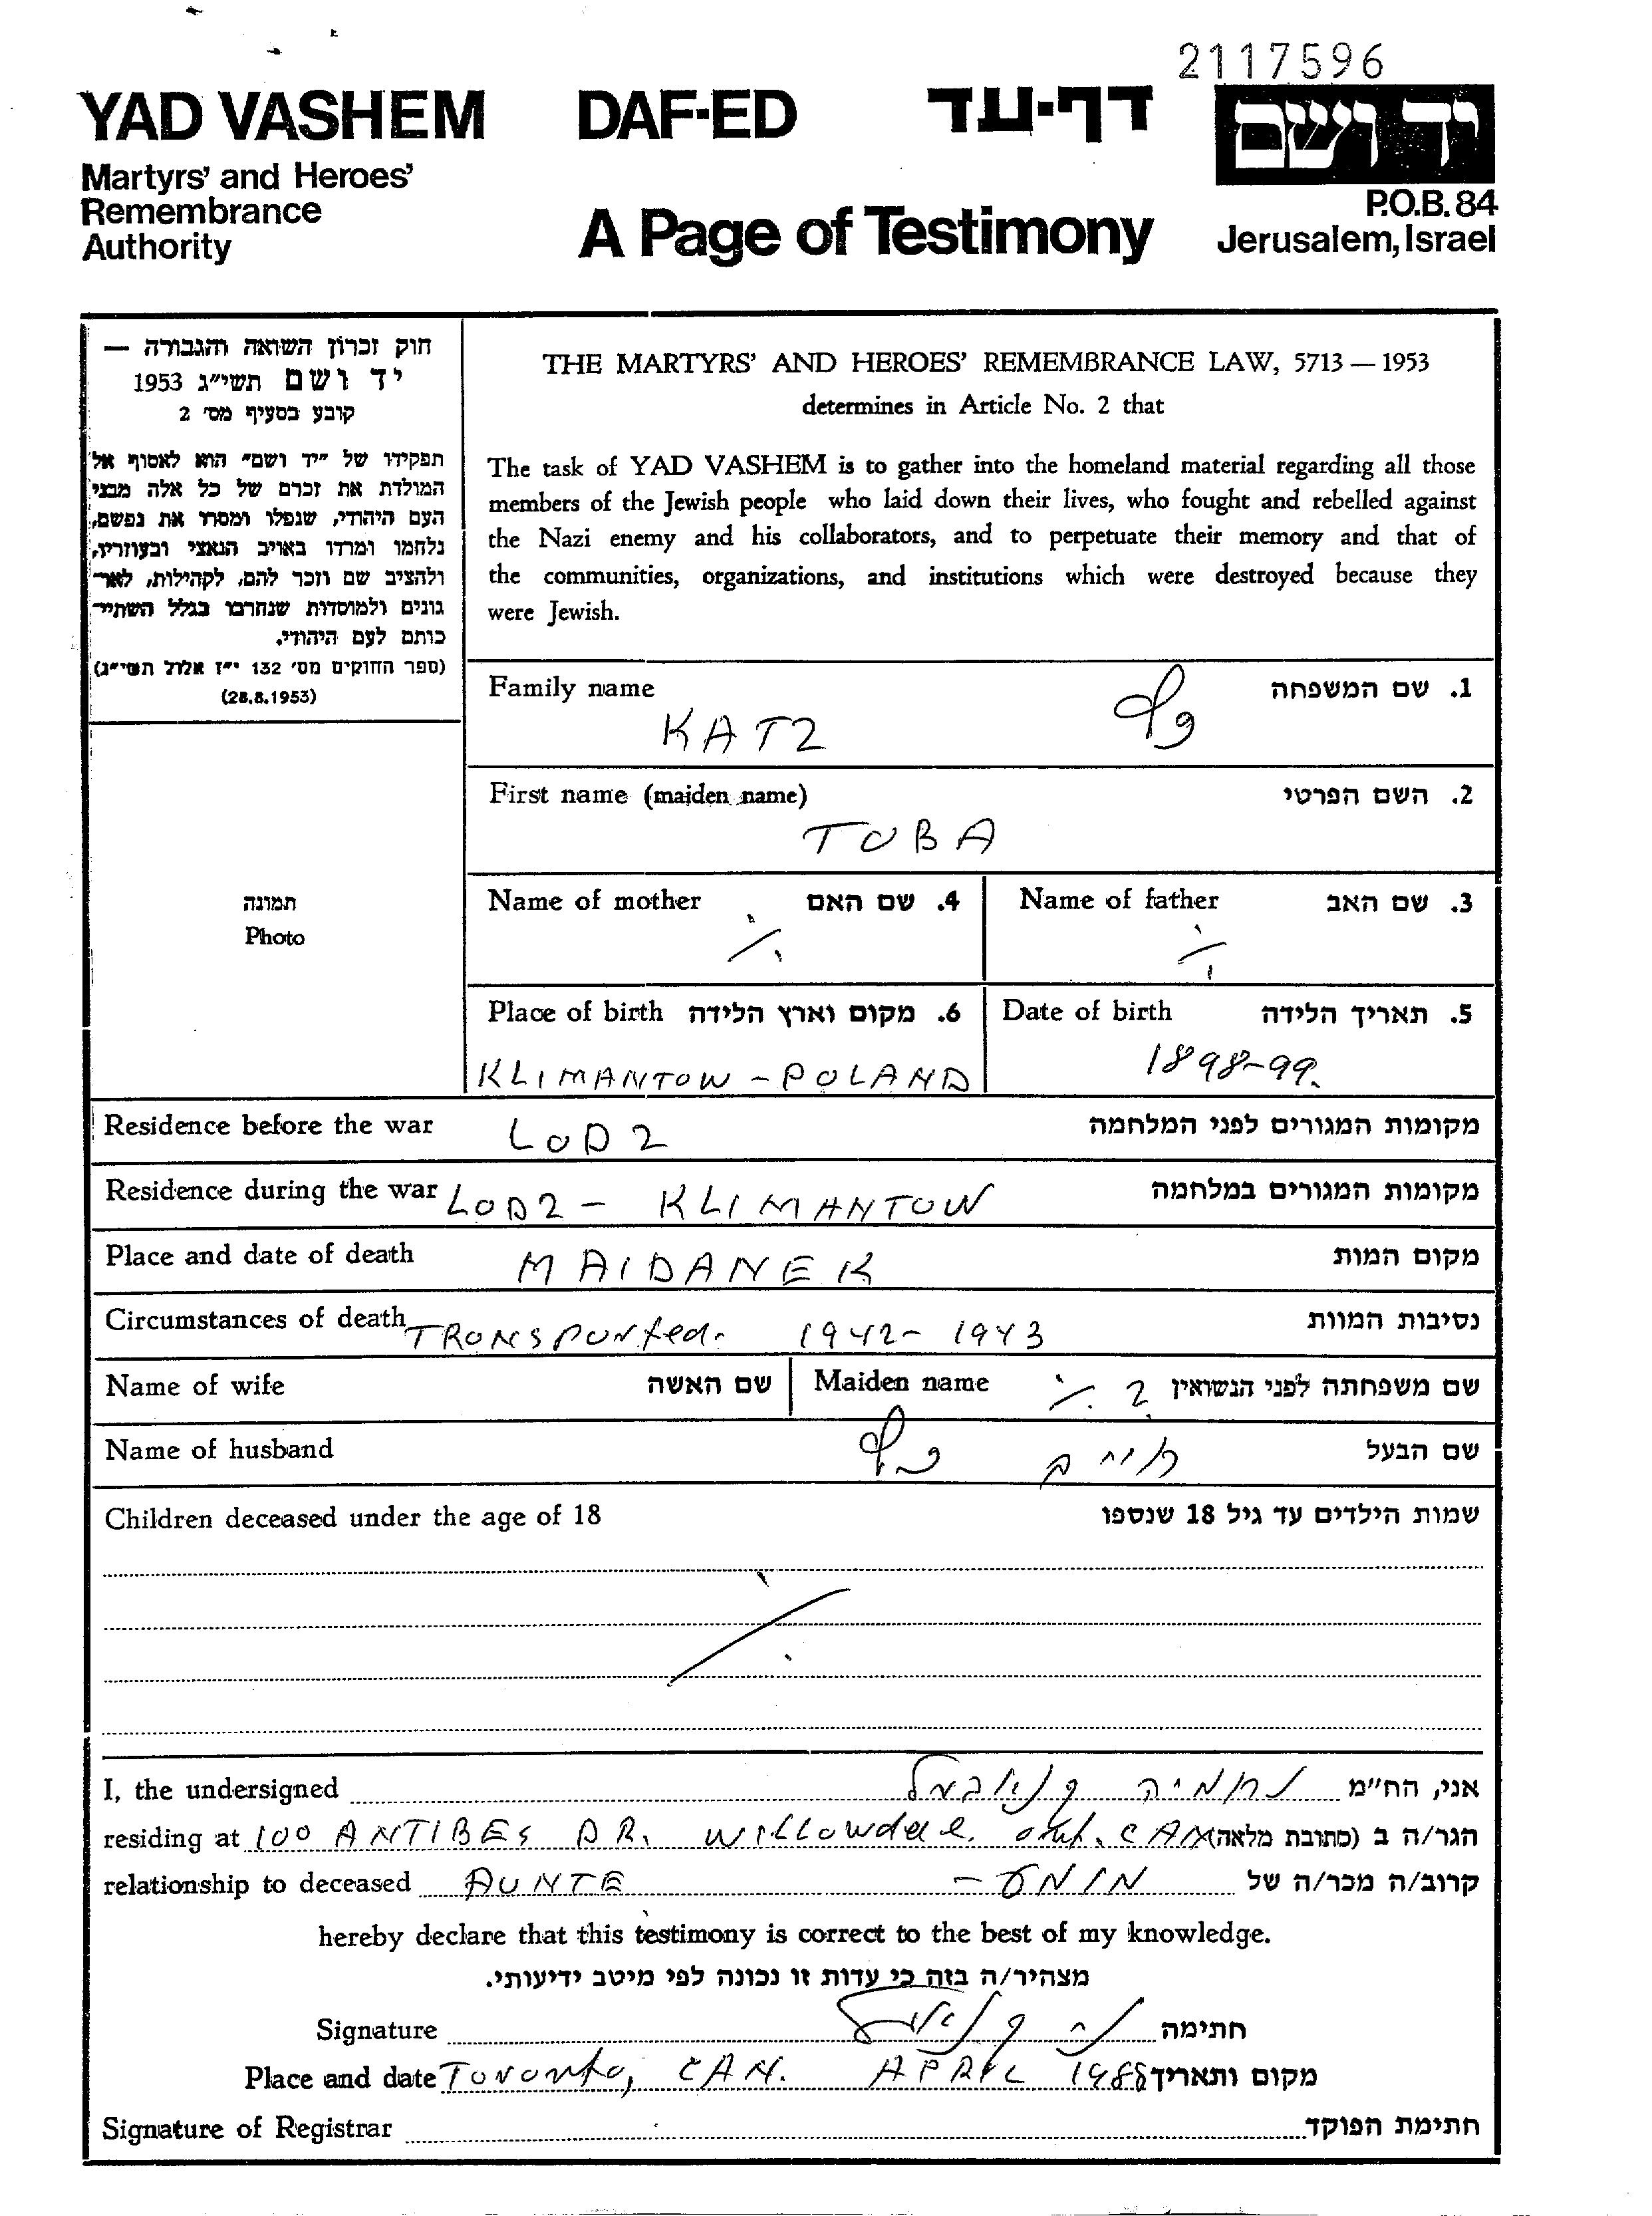 2117596
YAD VASHEM DAF-ED דף-עד יד ושם
Martyrs' and Heroes'
Remembrance
Authority
A Page of Testimony
P.O.B. 84
Jerusalem, Israel
חוק זכרון השואה והגבורה —
יד ושם תשי״ג 1953
קובע בסעיף מס׳ 2
תפקידו של ״יד ושם״ הוא לאסוף אל
המולדת את זכרם של כל אלה מבני
העם היהודי, שנפלו ומסרו את נפשם,
נלחמו ומרדו באויב הנאצי ובעוזריו,
ולהציב שם וזכר להם, לקהילות, לאר־
גונים ולמוסדות שנחרבו בגלל השתיי־
כותם לעם היהודי.
(ספר החוקים מס׳ 132 י״ז אלול תשי״ג)
(28.8.1953)
תמונה
Photo
THE MARTYRS' AND HEROES' REMEMBRANCE LAW, 5713 — 1953
determines in Article No. 2 that
The task of YAD VASHEM is to gather into the homeland material regarding all those
members of the Jewish people who laid down their lives, who fought and rebelled against
the Nazi enemy and his collaborators, and to perpetuate their memory and that of
the communities, organizations, and institutions which were destroyed because they
were Jewish.
Family name 1. שם המשפחה
KATZ כץ
First name (maiden name) 2. השם הפרטי
TOBA
Name of mother 4. שם האם Name of father 3. שם האב
Place of birth 6. מקום וארץ הלידה Date of birth 5. תאריך הלידה
KLIMANTOW - POLAND 1898-99.
Residence before the war LODZ מקומות המגורים לפני המלחמה
Residence during the war LODZ - KLIMANTOW מקומות המגורים במלחמה
Place and date of death MAIDANEK מקום המות
Circumstances of death TRANSPORTED. 1942-1943 נסיבות המוות
Name of wife שם האשה Maiden name ? שם משפחתה לפני הנשואין
Name of husband חיים כץ שם הבעל
Children deceased under the age of 18 שמות הילדים עד גיל 18 שנספו
I, the undersigned נחמיה אני, הח״מ
residing at 100 ANTIBES DR. WILLOWDALE, ONT. CAN הגר/ה ב (כתובת מלאה)
relationship to deceased AUNTE - קרוב/ה מכר/ה של
hereby declare that this testimony is correct to the best of my knowledge.
מצהיר/ה בזה כי עדות זו נכונה לפי מיטב ידיעותי.
Signature חתימה
Place and date Toronto, CAN. APRIL 1988 מקום ותאריך
Signature of Registrar חתימת הפוקד